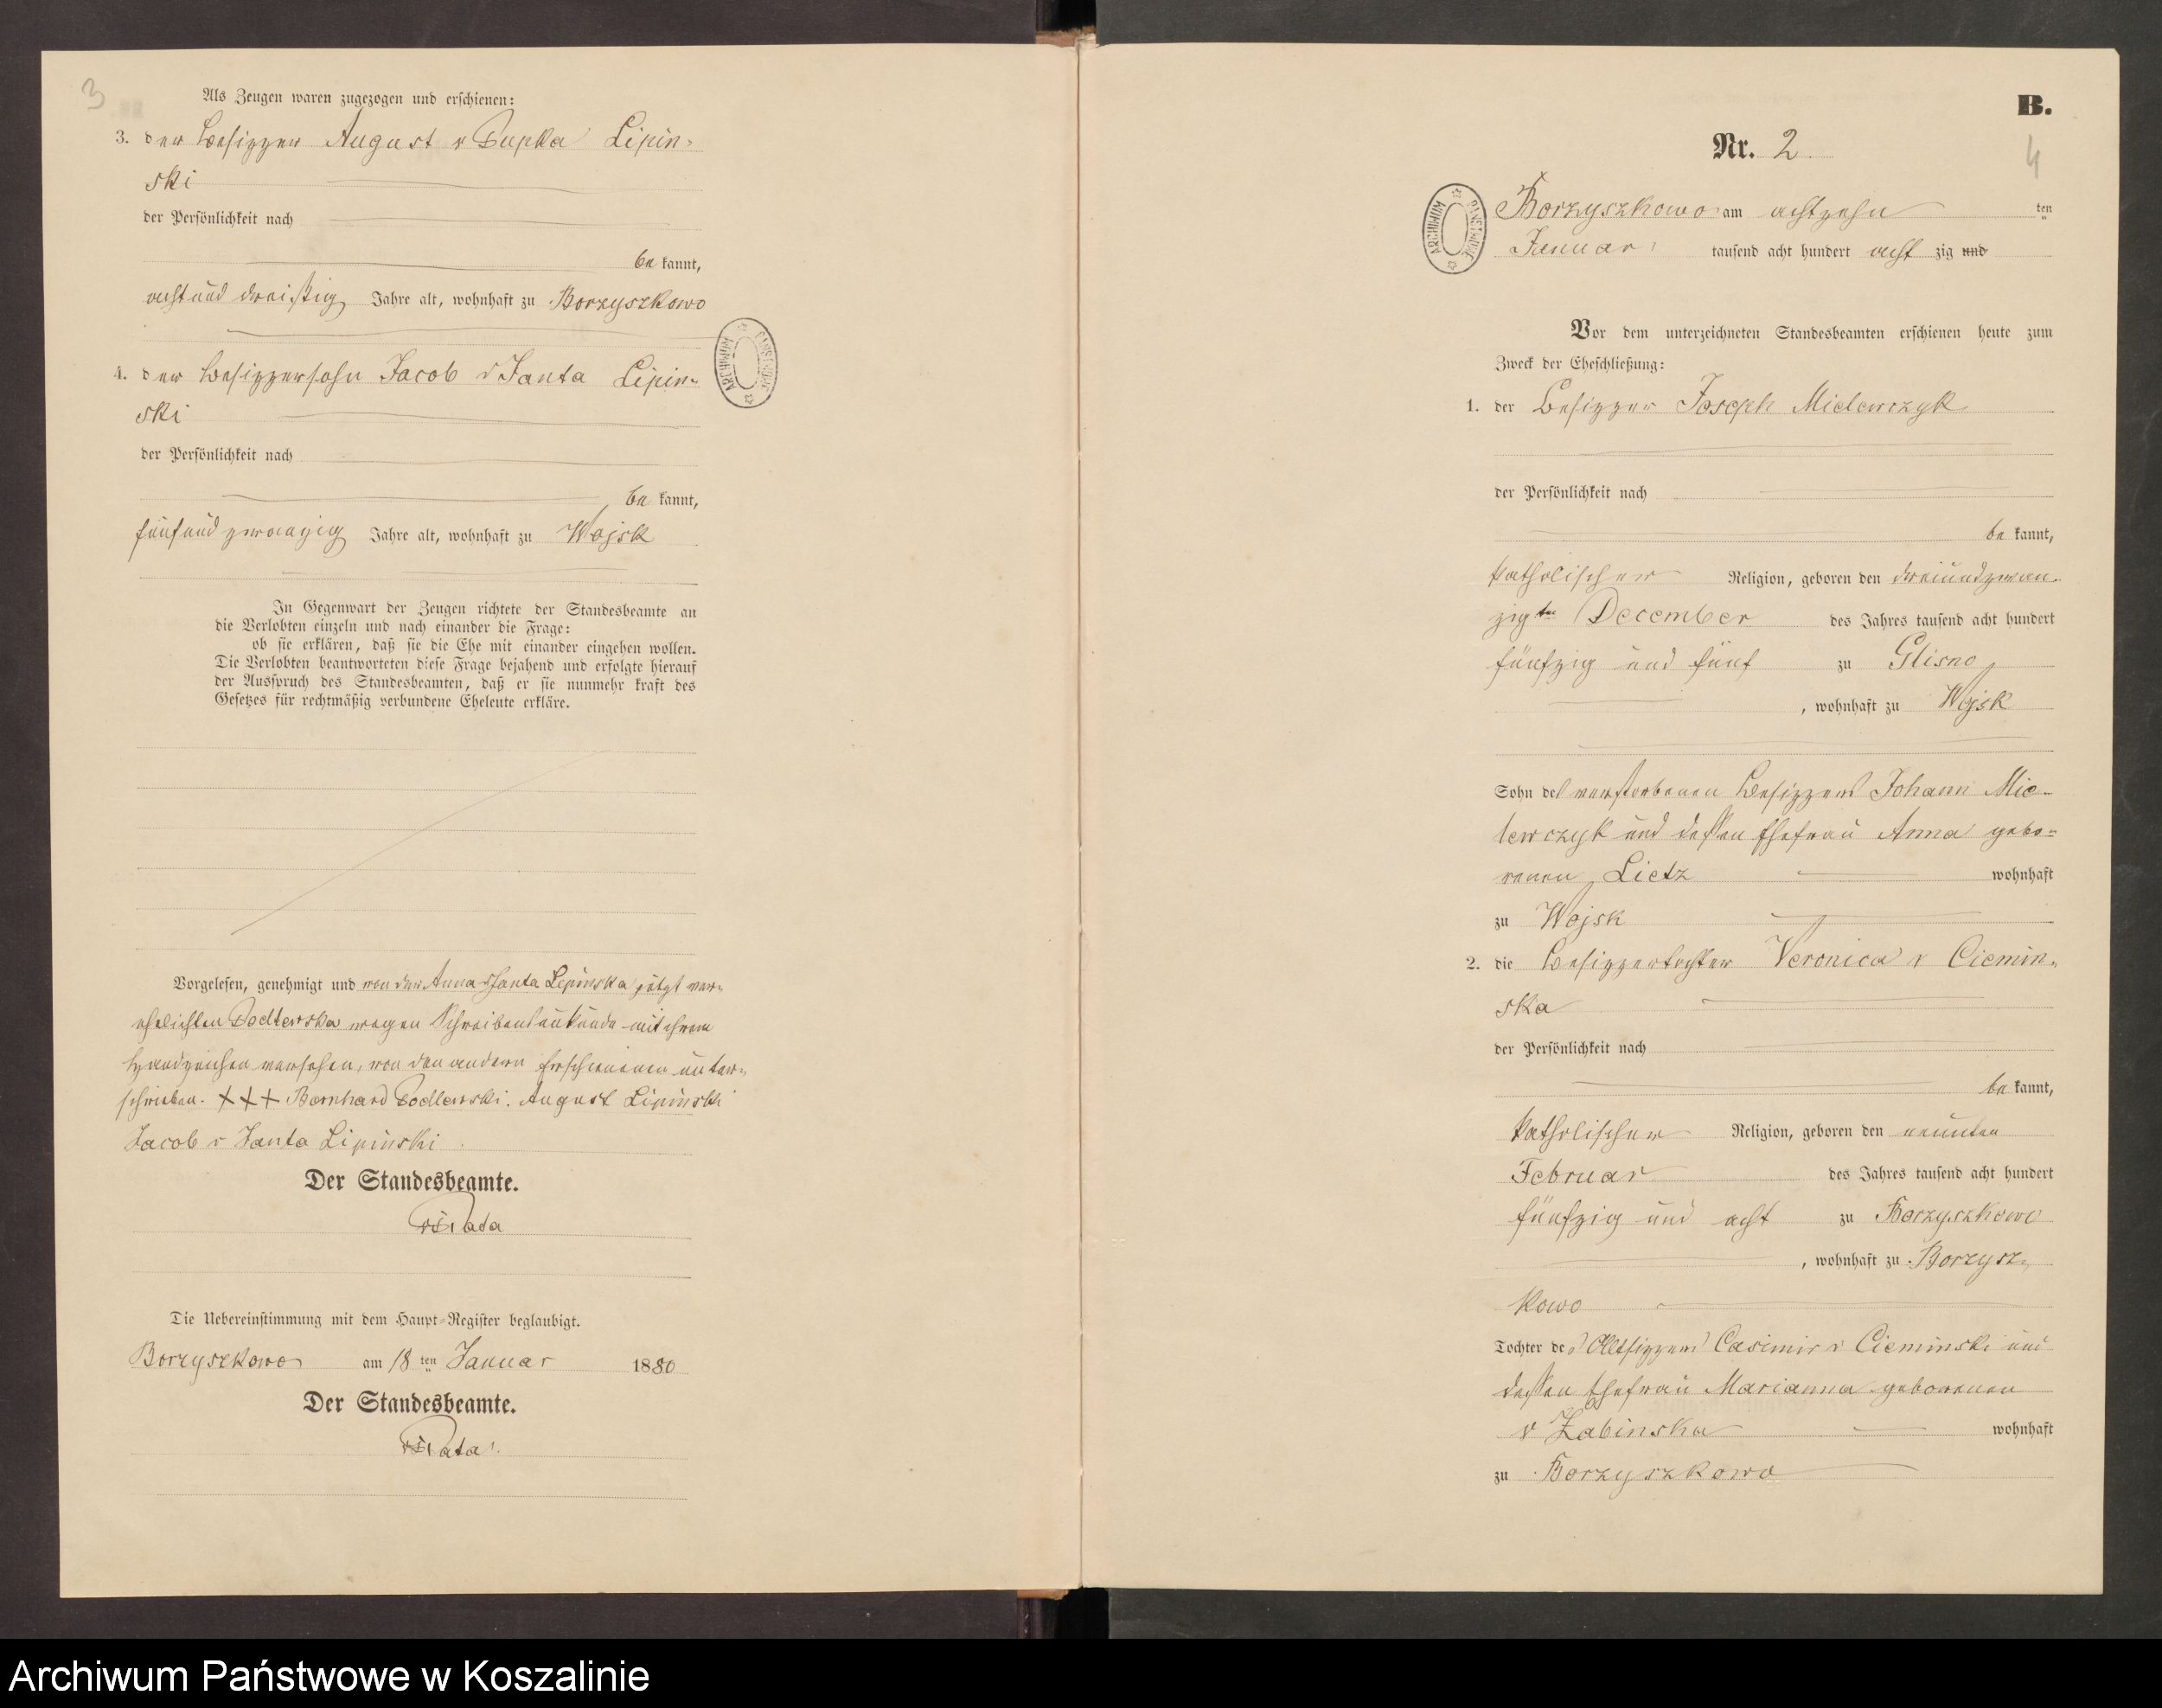 3
Als Zeugen waren zugezogen und erschienen:
3. der Besitzer August v Pupka Lipin-
ski
der Persönlichkeit nach
be kannt,
acht und dreißig Jahre alt, wohnhaft zu Borzyszkowo
4. der Besitzersohn Jacob v Janta Lipin-
ski
der Persönlichkeit nach
be kannt,
fünfundzwanzig Jahre alt, wohnhaft zu Wojsk
In Gegenwart der Zeugen richtete der Standesbeamte an
die Verlobten einzeln und nach einander die Frage:
ob sie erklären, daß sie die Ehe mit einander eingehen wollen.
Die Verlobten beantworteten diese Frage bejahend und erfolgte hierauf
der Ausspruch des Standesbeamten, daß er sie nunmehr kraft des
Gesetzes für rechtmäßig verbundene Eheleute erkläre.
Vorgelesen, genehmigt und von der Anna v Janta Lipinska jetzt ver-
ehelichten Podlewska wegen Schreibensunkunde mit ihrem
Handzeichen versehen, von den andern Erschienenen unter-
schrieben. +++ Bernhard Podlewski. August Lipinski
Jacob v Janta Lipinski
Der Standesbeamte.
Die Uebereinstimmung mit dem Haupt-Register beglaubigt.
Borzyszkowo am 18 ten Januar 1880
Der Standesbeamte.
ARCHIWUM PAŃSTWOWE
B.
4
Nr. 2.
Borzyszkowo am achtzehn ten
Januar tausend acht hundert acht zig und
ARCHIWUM PAŃSTWOWE
Vor dem unterzeichneten Standesbeamten erschienen heute zum
Zweck der Eheschließung:
1. der Besitzer Joseph Mielewczyk
der Persönlichkeit nach
be kannt,
katholischer Religion, geboren den dreiundzwan-
zigten December des Jahres tausend acht hundert
fünfzig und fünf zu Glisno
, wohnhaft zu Wojsk
Sohn des verstorbenen Besitzers Johann Mie-
lewczyk und dessen Ehefrau Anna gebo-
renen Lietz wohnhaft
zu Wojsk
2. die Besitzertochter Veronica v Ciemin-
ska
der Persönlichkeit nach
be kannt,
katholischer Religion, geboren den neunten
Februar des Jahres tausend acht hundert
fünfzig und acht zu Borzyszkowo
, wohnhaft zu Borzysz-
kowo
Tochter des Altsitzers Casimir v Cieminski und
dessen Ehefrau Marianna geborenen
v Zabinska wohnhaft
zu Borzyszkowo
Archiwum Państwowe w Koszalinie